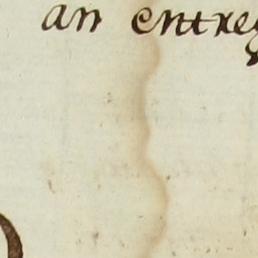 an entre